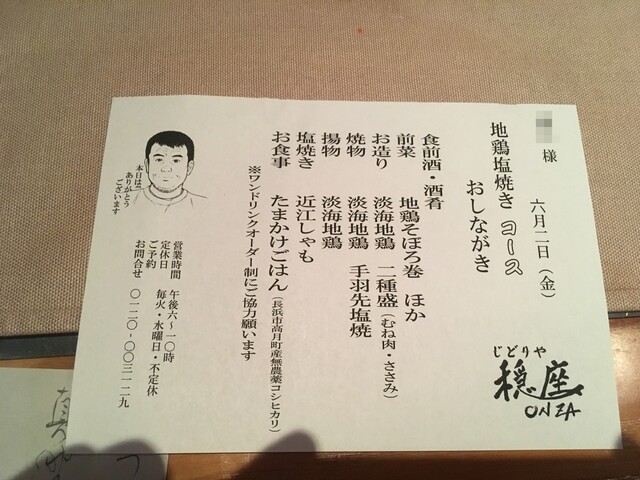 様
六月二日（金）
地鶏塩焼き コース
おしながき
食前酒・酒肴
前菜 地鶏そぼろ巻 ほか
お造り 淡海地鶏 二種盛（むね肉・ささみ）
焼物 淡海地鶏 手羽先塩焼
揚物 淡海地鶏
塩焼き 近江しゃも
お食事 たまかけごはん（長浜市高月町産無農薬コシヒカリ）
※ワンドリンクオーダー制にご協力願います
じどりや
穏座
ONZA
営業時間 午後六〜一〇時
定休日 毎火・水曜日・不定休
ご予約
お問合せ 〇一二〇-〇〇三-一二九
本日は
ありがとう
ございます